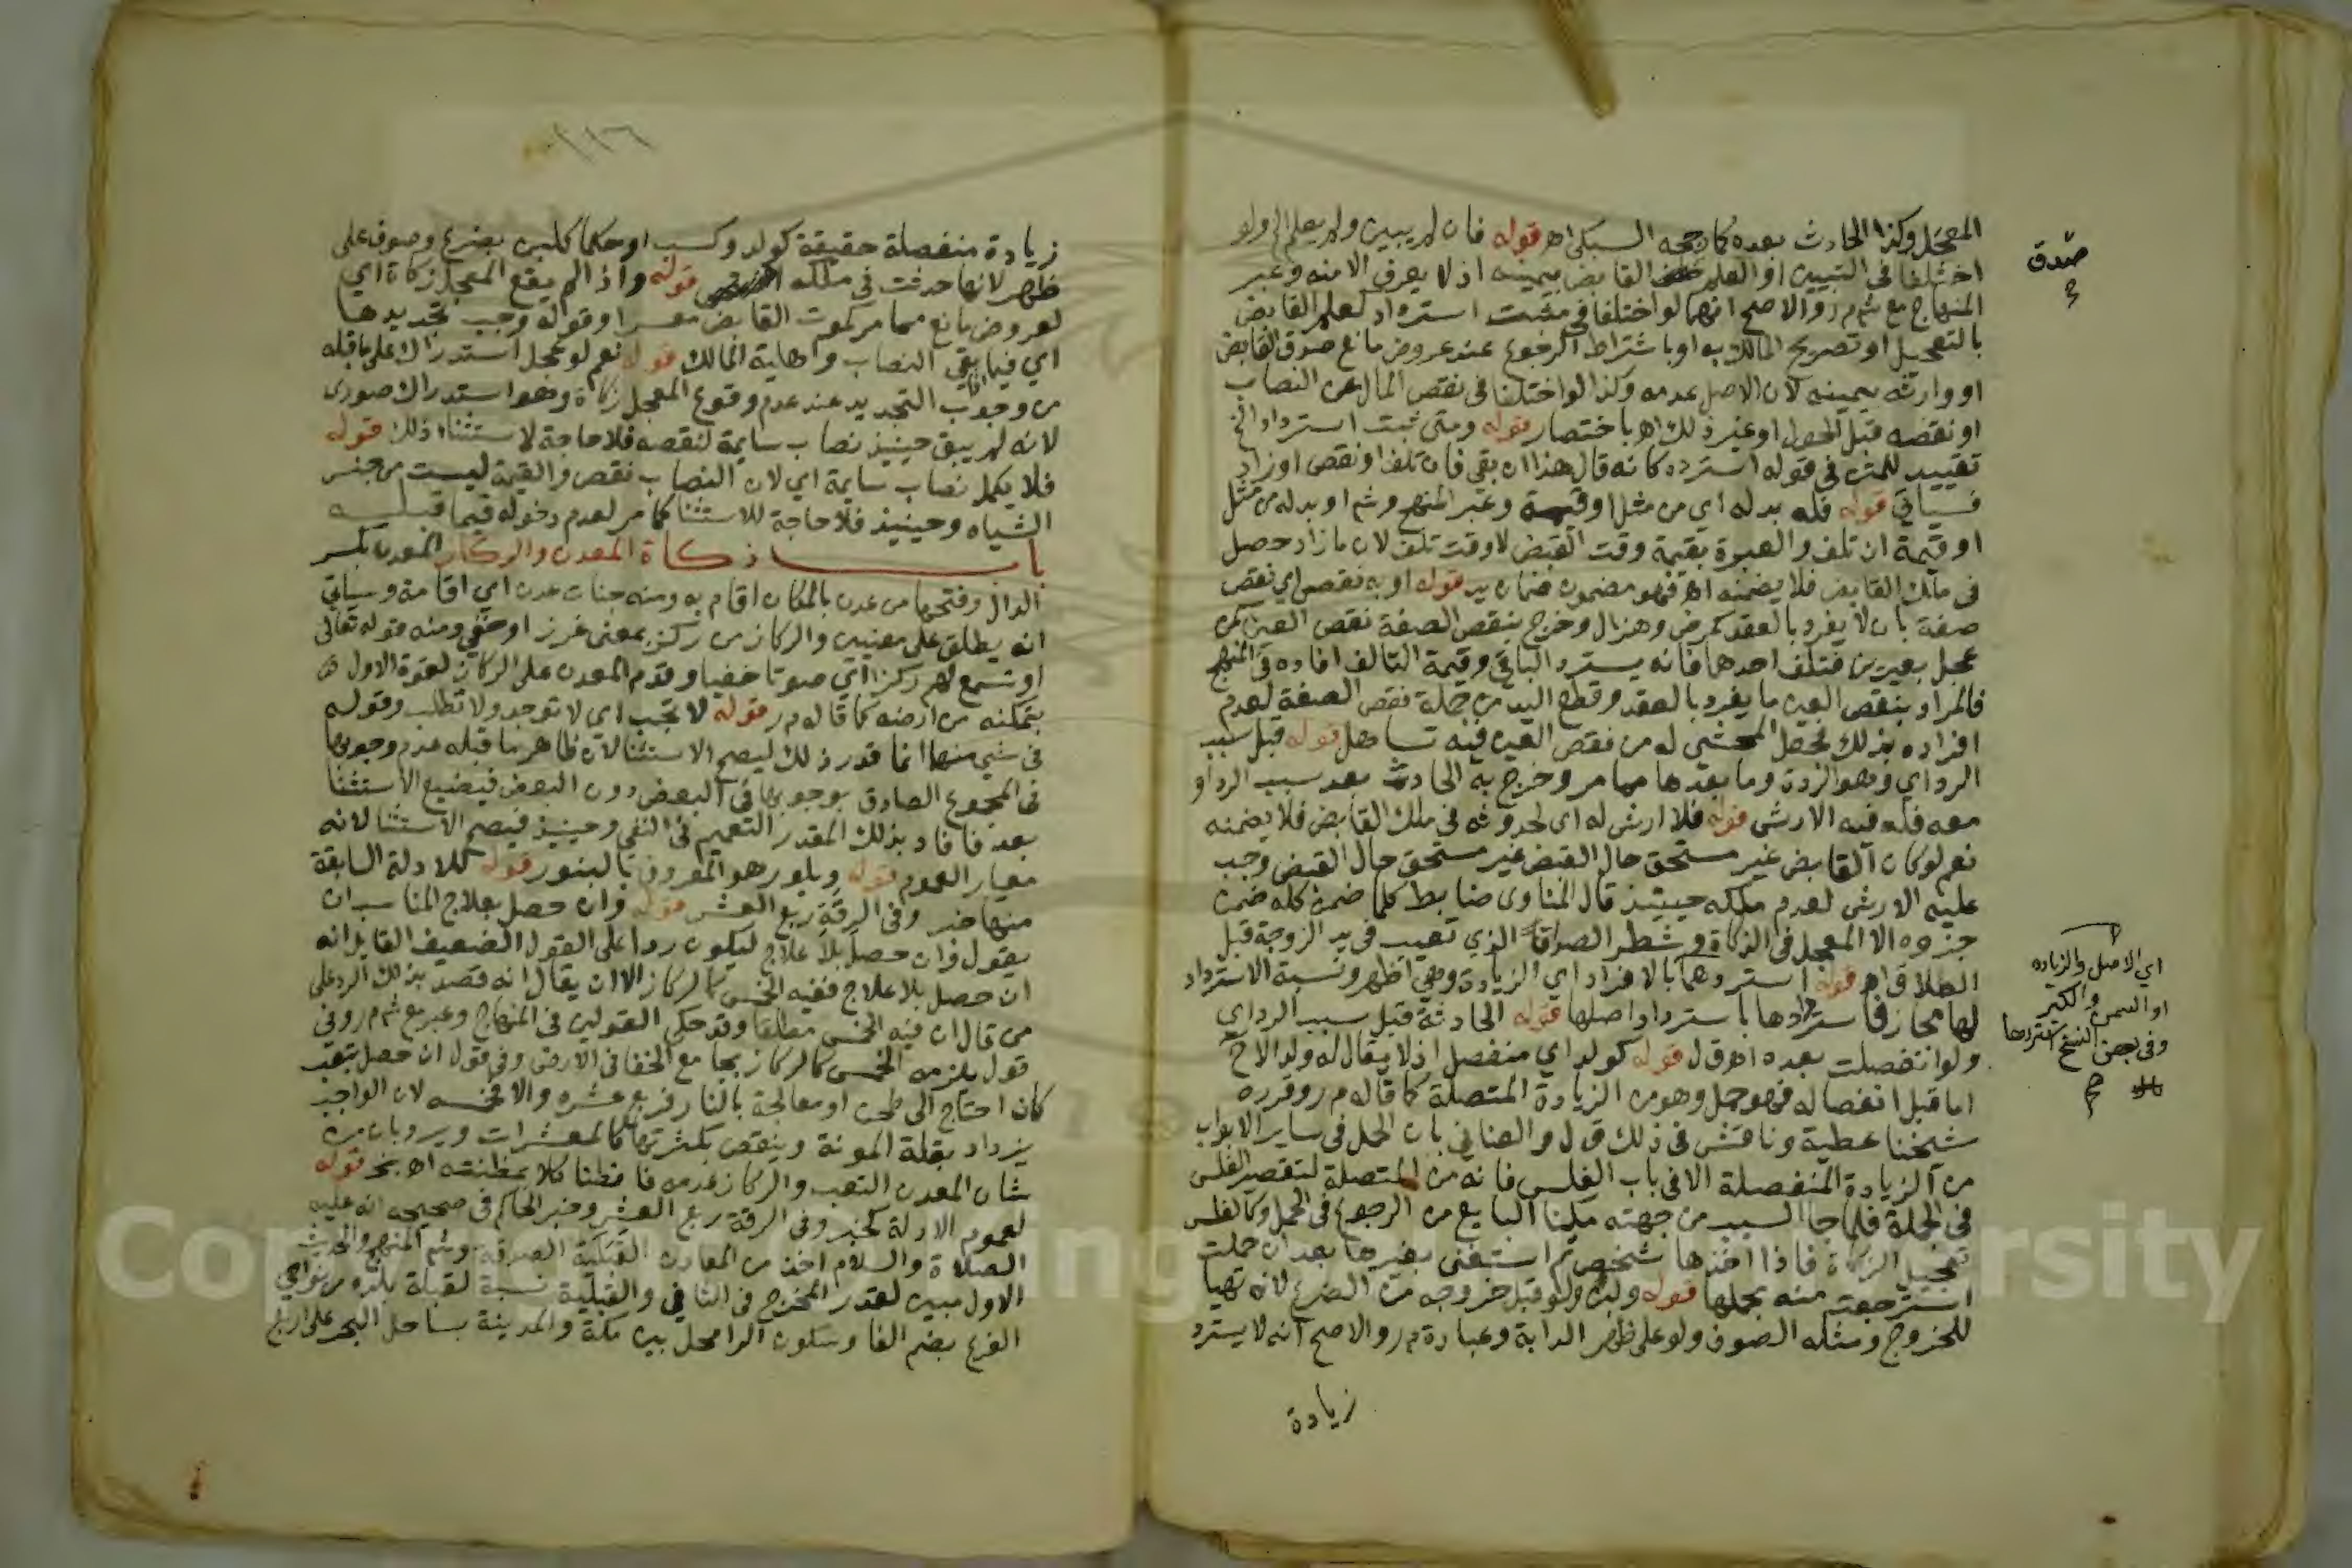 المعجل وكذا الحادث بعده كما رجحه السبكي اهـ قوله فان لم يبين ولم يعلم الخ ولو
اختلفا في التبيين او العلم القابض بيمينه اذ لا يعرف الا منه وعبر
المنهاج مع ش م ر والاصح انهما لو اختلفا في مثبت استرداد كعلم القابض
بالتعجيل او تصريح المالك به او باشتراط الرجوع عند عروض مانع صدق القابض
او وارثه بيمينه لان الاصل عدمه وكذا لو اختلفا في نقص المال عن النصاب
او نقصه قبل الحول او غير ذلك اهـ باختصار قوله ومتى ثبت استرداد الخ
تقييد للمتن في قوله استرده كانه قال هذا ان بقي فان تلف او نقص او زاد
فسياتي قوله فله بدله اي من مثل او قيمة وعبر المنهج وش او بدله من مثل
او قيمة ان تلف والعبرة بقيمة وقت القبض لا وقت تلف لان ما زاد حصل
في ملك القابض فلا يضمنه اهـ فهو مضمون ضمان يد قوله او به نقص اي نقص
صفة بان لا يفرد بالعقد كمرض وهزال وخرج بنقص الصفة نقص العين كمن
عجل بعيرين فتلف احدهما فانه يسترد الباقي وقيمة التالف افاده في المنهج
فالمراد بنقص العين ما يفرد بالعقد وقطع اليد من جملة نقص الصفة لعدم
افراده بذلك فجعل المحشي له من نقص العين فيه تساهل قوله قبل سبب
الرد اي وهو الردة وما بعدها مما مر وخرج به الحادث بعد سبب الرد او
معه فله فيه الارش قوله فلا ارش له اي لحدوثه في ملك القابض فلا يضمنه
نعم لو كان القابض غير مستحق حال القبض غير مستحق حال القبض وجب
عليه الارش لعدم ملكه حينئذ قال المناوي ضابط كلما ضمن كله ضمن
جزوه الا المعجل في الزكاة وشطر الصداق الذي تعيب في يد الزوجة قبل
الطلاق اهـ قوله استردهما بالافراد اي الزيادة وهي اظهر ونسبة الاسترداد
لها مجاز فاستردادها باسترداد اصلها قوله الحادثة قبل سبب الرد اي
ولو انفصلت بعده اهـ ق ل قوله كولد اي منفصل اذ لا يقال له ولد الا ح
اما قبل انفصاله فهو حمل وهو من الزيادة المتصلة كما قاله م ر وقرره
شيخنا عطية وناقش في ذلك ق ل والعناني بان الحمل في ساير الابواب
من الزيادة المنفصلة الا في باب الفلس فانه من المتصلة لتقصير المفلس
في الجملة فلما جا السبب من جهته مكنا البايع من الرجوع في الحمل وكالفلس
تعجيل الزكاة فاذا اخذها شخص ثم استغنى بغيرها بعد ان حملت
استرجعت منه بحملها قوله ولبن ولو قبل خروجه من الضرع لانه تهيا
للخروج ومثله الصوف ولو على ظهر الدابة وعبارة م ر والاصح انه لا يسترد
زيادة
صدق
اي الاصل والزياده
او السمن والكبر
وفي بعض النسخ استردها
زيادة منفصلة حقيقة كولد وكسب او حكما كلبن بضرع وصوف على
ظهر لانها حدثت في ملكه قوله واذا لم يقع المعجل زكاة اي
لعروض مانع مما مر كموت القابض معسرا وقوله وجب تجديدها
اي فيما بقي النصاب واهلية المالك قوله نعم لو عجل استدراك على ما قبله
من وجوب التجديد عند عدم وقوع المعجل زكاة وهو استدراك صوري
لانه لم يبق حينيذ نصاب سايمة لنقصه فلا حاجة لاستثناء ذلك قوله
فلا يكمل نصاب سايمة اي لان النصاب نقص والقيمة ليست من جنس
الشياه وحينيذ فلا حاجة للاستثنا كما مر لعدم دخوله فيما قبله
باب زكاة المعدن والركاز المعدن بكسر
الدال وفتحها من عدن بالمكان اقام به ومنه جنات عدن اي اقامة وسياتي
انه يطلق على معنيين والركاز من ركز بمعنى غرز او خفي ومنه قوله تعالى
او تسمع لهم ركزا اي صوتا خفيا وقدم المعدن على الركاز لقوة الاول
بتمكنه من ارضه كما قاله م ر قوله لا تجب اي لا توجد ولا تطلب وقوله
في شي منها انما قدر ذلك ليصح الاستثنا لان ظاهر ما قبله عدم وجوبها
في المجموع الصادق بوجوبها في البعض دون البعض فيضيع الاستثنا
بعد فافاد بذلك المقدر التعميم في النفي وحينيذ فيصح الاستثنا لانه
معيار العموم قوله وبلور هو المعروف بالبنور قوله كلادلة السابقة
منها خبر وفي الرقة ربع العشر قوله وان حصل بعلاج المناسب ان
يقول وان حصل بلا علاج ليكون ردا على القول الضعيف القايل انه
ان حصل بلا علاج ففيه الخمس كالركاز الا ان يقال انه قصد بذلك الرد على
من قال ان فيه الخمس مطلقا وقد حكى القولين في المنهاج وعبر مع ش م ر وفي
قول يلزمه الخمس كالركاز بجامع الخفا في الارض وفي قول ان حصل بتعب
كان احتاج الى طحن او معالجة بالنار فربع عشره والا فخمسه لان الواجب
يزداد بقلة المونة وينقص بكثرتها كالمعشرات ويرد بان من
شان المعدن التعب والركاز عدمه فانطنا كلا بمظنته اهـ بخ قوله
لعموم الادلة كخبر وفي الرقة ربع العشر وخبر الحاكم في صحيحه انه عليه
الصلاة والسلام اخذ من المعادن القبلية الصدقة وش المنهج والحديث
الاول مبين لقدر المخرج في الثاني والقبلية نسبة لقبلة بلده من نواحي
الفرع بضم الفا وسكون الرا محل بين مكة والمدينة بساحل البحر على اربع